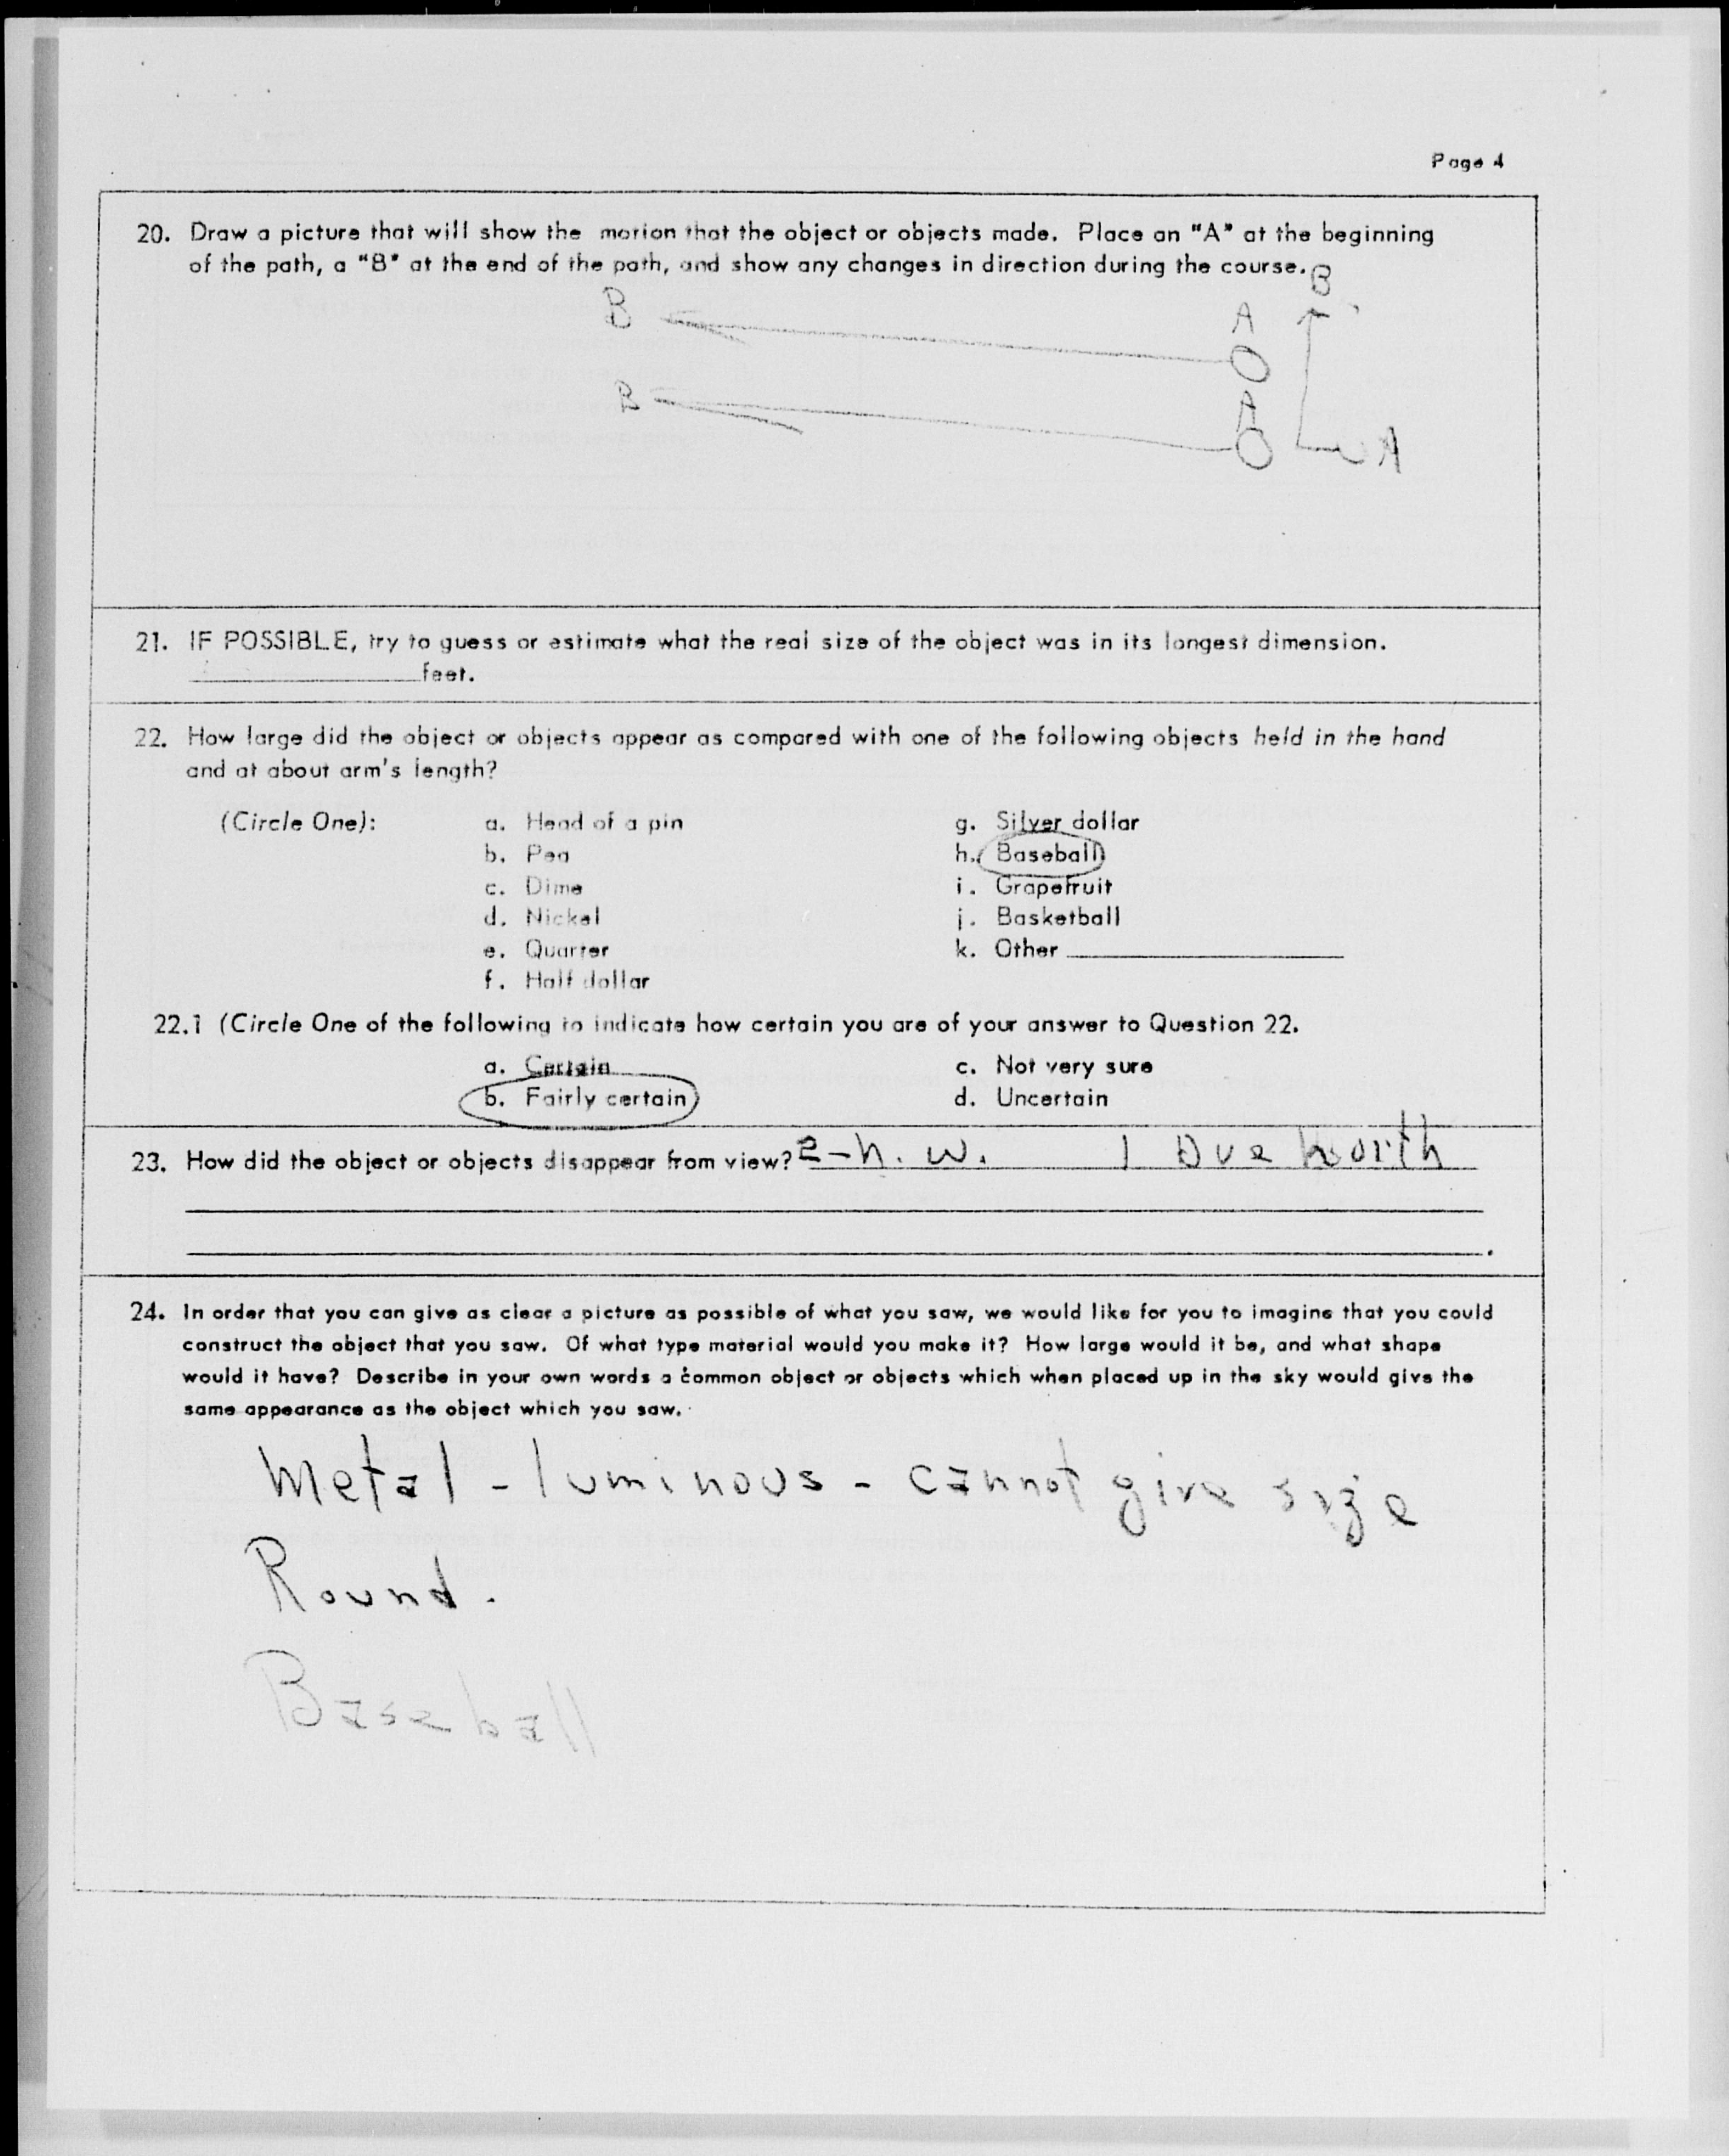 Page 4
20. Draw a picture that will show the motion that the object or objects made. Place an "A" at the beginning
of the path, a "B" at the end of the path, and show any changes in direction during the course.
B
B A
A
B
A
21. IF POSSIBLE, try to guess or estimate what the real size of the object was in its longest dimension.
____________feet.
22. How large did the object or objects appear as compared with one of the following objects held in the hand
and at about arm's length?
(Circle One): a. Head of a pin g. Silver dollar
b. Pea h. Baseball
c. Dime i. Grapefruit
d. Nickel j. Basketball
e. Quarter k. Other ____________
f. Half dollar
22.1 (Circle One of the following to indicate how certain you are of your answer to Question 22.
a. Certain c. Not very sure
b. Fairly certain d. Uncertain
23. How did the object or objects disappear from view? 2-N. W. 1 Due North
24. In order that you can give as clear a picture as possible of what you saw, we would like for you to imagine that you could
construct the object that you saw. Of what type material would you make it? How large would it be, and what shape
would it have? Describe in your own words a common object or objects which when placed up in the sky would give the
same appearance as the object which you saw.
Metal - luminous - cannot give size
Round.
Baseball